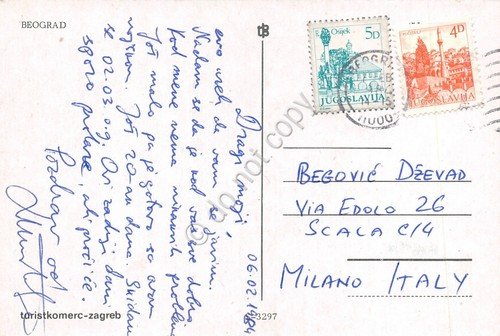 BEOGRAD
5D
Osijek
JUGOSLAVIJA
4D
JUGOSLAVIJA
11000
06.02.1984
Dragi moji,
evo uzeh da vam se javim.
Nadam se da je kod vas sve dobro
Kod mene nema nikakvih problema
Još malo pa je gotovo sa ovom
vojskom. Još 20 dana. Skidam
se 02.03 o.g. Ovi zadnji dani
sporo prolaze, ali proći će.
Pozdrav od
BEGOVIĆ DŽEVAD
VIA EDOLO 26
SCALA C/4
MILANO ITALY
turistkomerc-zagreb
3297
do not copy